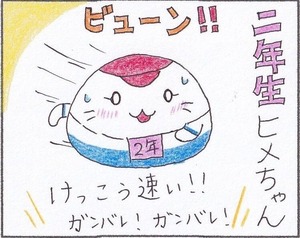 ビューン!!
二年生ヒメちゃん
2年
けっこう速い!!
ガンバレ!ガンバレ!